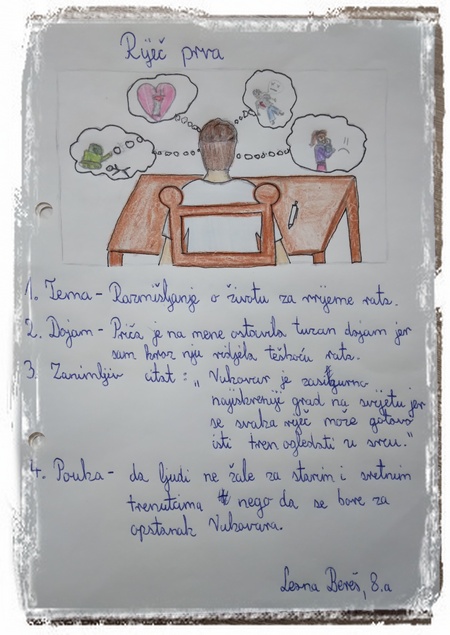 Riječ prva
1. Tema - Razmišljanje o životu za vrijeme rata.
2. Dojam - Priča je na mene ostavila tužan dojam jer
sam kroz nju vidjela težkoću rata.
3. Zanimljiv citat: „Vukovar je zasigurno
najiskreniji grad na svijetu jer
se svaka riječ može gotovo
isti tren ogledati u srcu."
4. Pouka - da ljudi ne žale za starim i sretnim
trenutcima nego da se bore za
opstanak Vukovara.
Leona Bereš, 8.a